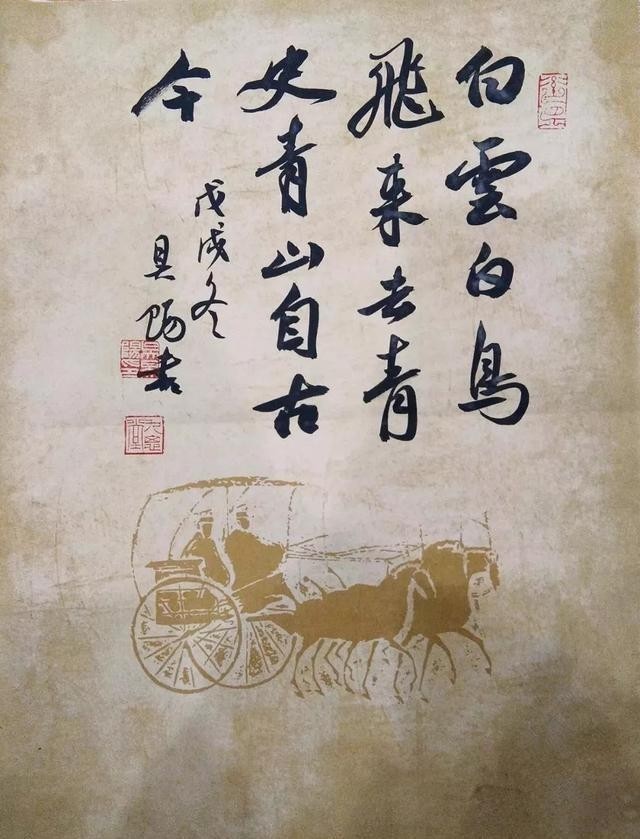 白雲白鳥
飛来去青
史青山自古
今
戊戌冬